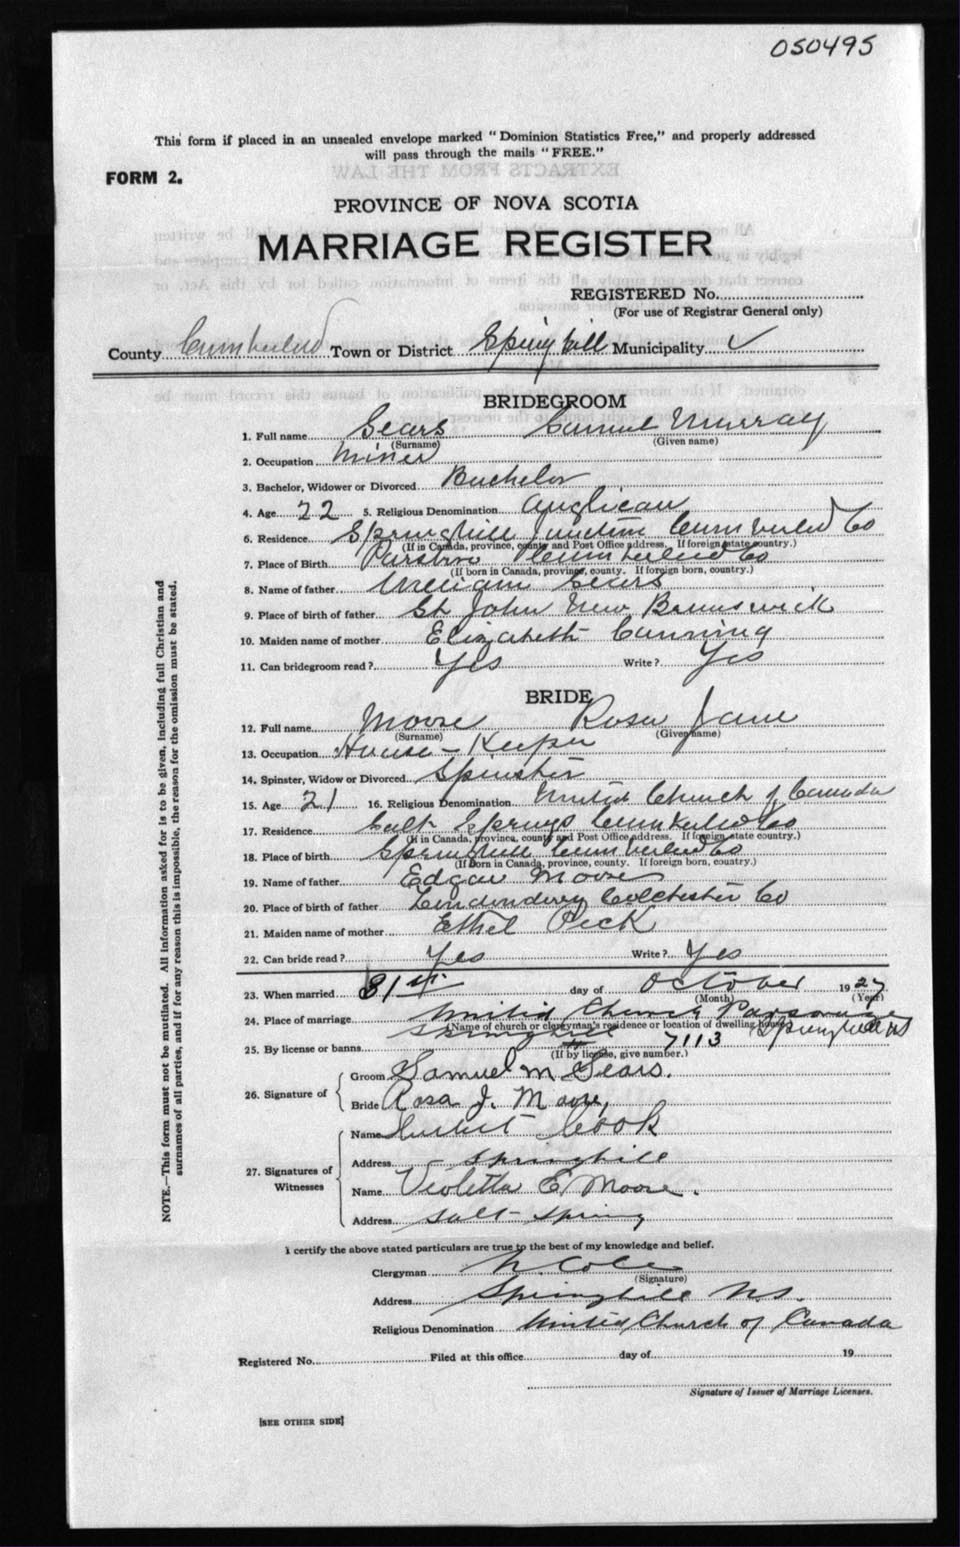 050495
This form if placed in an unsealed envelope marked "Dominion Statistics Free," and properly addressed
will pass through the mails "FREE."
FORM 2.
PROVINCE OF NOVA SCOTIA
MARRIAGE REGISTER
REGISTERED No.
(For use of Registrar General only)
County Cumberland Town or District Springhill Municipality ✓
BRIDEGROOM
1. Full name Sears Samuel Murray
(Surname) (Given name)
2. Occupation Miner
3. Bachelor, Widower or Divorced Bachelor
4. Age 22 5. Religious Denomination Anglican
6. Residence Springhill Junction Cumberland Co
(If in Canada, province, county and Post Office address. If foreign state country.)
7. Place of Birth Parsboro Cumberland Co
(If born in Canada, province, county. If foreign born, country.)
8. Name of father William Sears
9. Place of birth of father St John New Brunswick
10. Maiden name of mother Elizabeth Canning
11. Can bridegroom read? Yes Write? Yes
BRIDE
12. Full name Moore Rosa Jane
(Surname) (Given name)
13. Occupation House-Keeper
14. Spinster, Widow or Divorced Spinster
15. Age 21 16. Religious Denomination United Church of Canada
17. Residence Salt Springs Cumberland Co
(If in Canada, province, county and Post Office address. If foreign state country.)
18. Place of birth Springhill Cumberland Co
(If born in Canada, province, county. If foreign born, country.)
19. Name of father Edgar Moore
20. Place of birth of father Londonderry Colchester Co
21. Maiden name of mother Ethel Peck
22. Can bride read? Yes Write? Yes
23. When married 31st day of October 1927
(Month) (Year)
24. Place of marriage United Church Parsonage
Springhill (Name of church or clergyman's residence or location of dwelling house) Springhill NS
25. By license or banns # 7113
(If by license, give number.)
26. Signature of
Groom Samuel M Sears.
Bride Rosa J. Moore,
27. Signatures of Witnesses
Name Cook
Address Springhill
Name Violetta E Moore.
Address Salt Spring
I certify the above stated particulars are true to the best of my knowledge and belief.
Clergyman Cole
(Signature)
Address Springhill N.S.
Religious Denomination United Church of Canada
Registered No. Filed at this office day of 19
Signature of Issuer of Marriage Licenses.
[SEE OTHER SIDE]
NOTE.—This form must not be mutilated. All information asked for is to be given, including full Christian and
surnames of all parties, and if for any reason this is impossible, the reason for the omission must be stated.